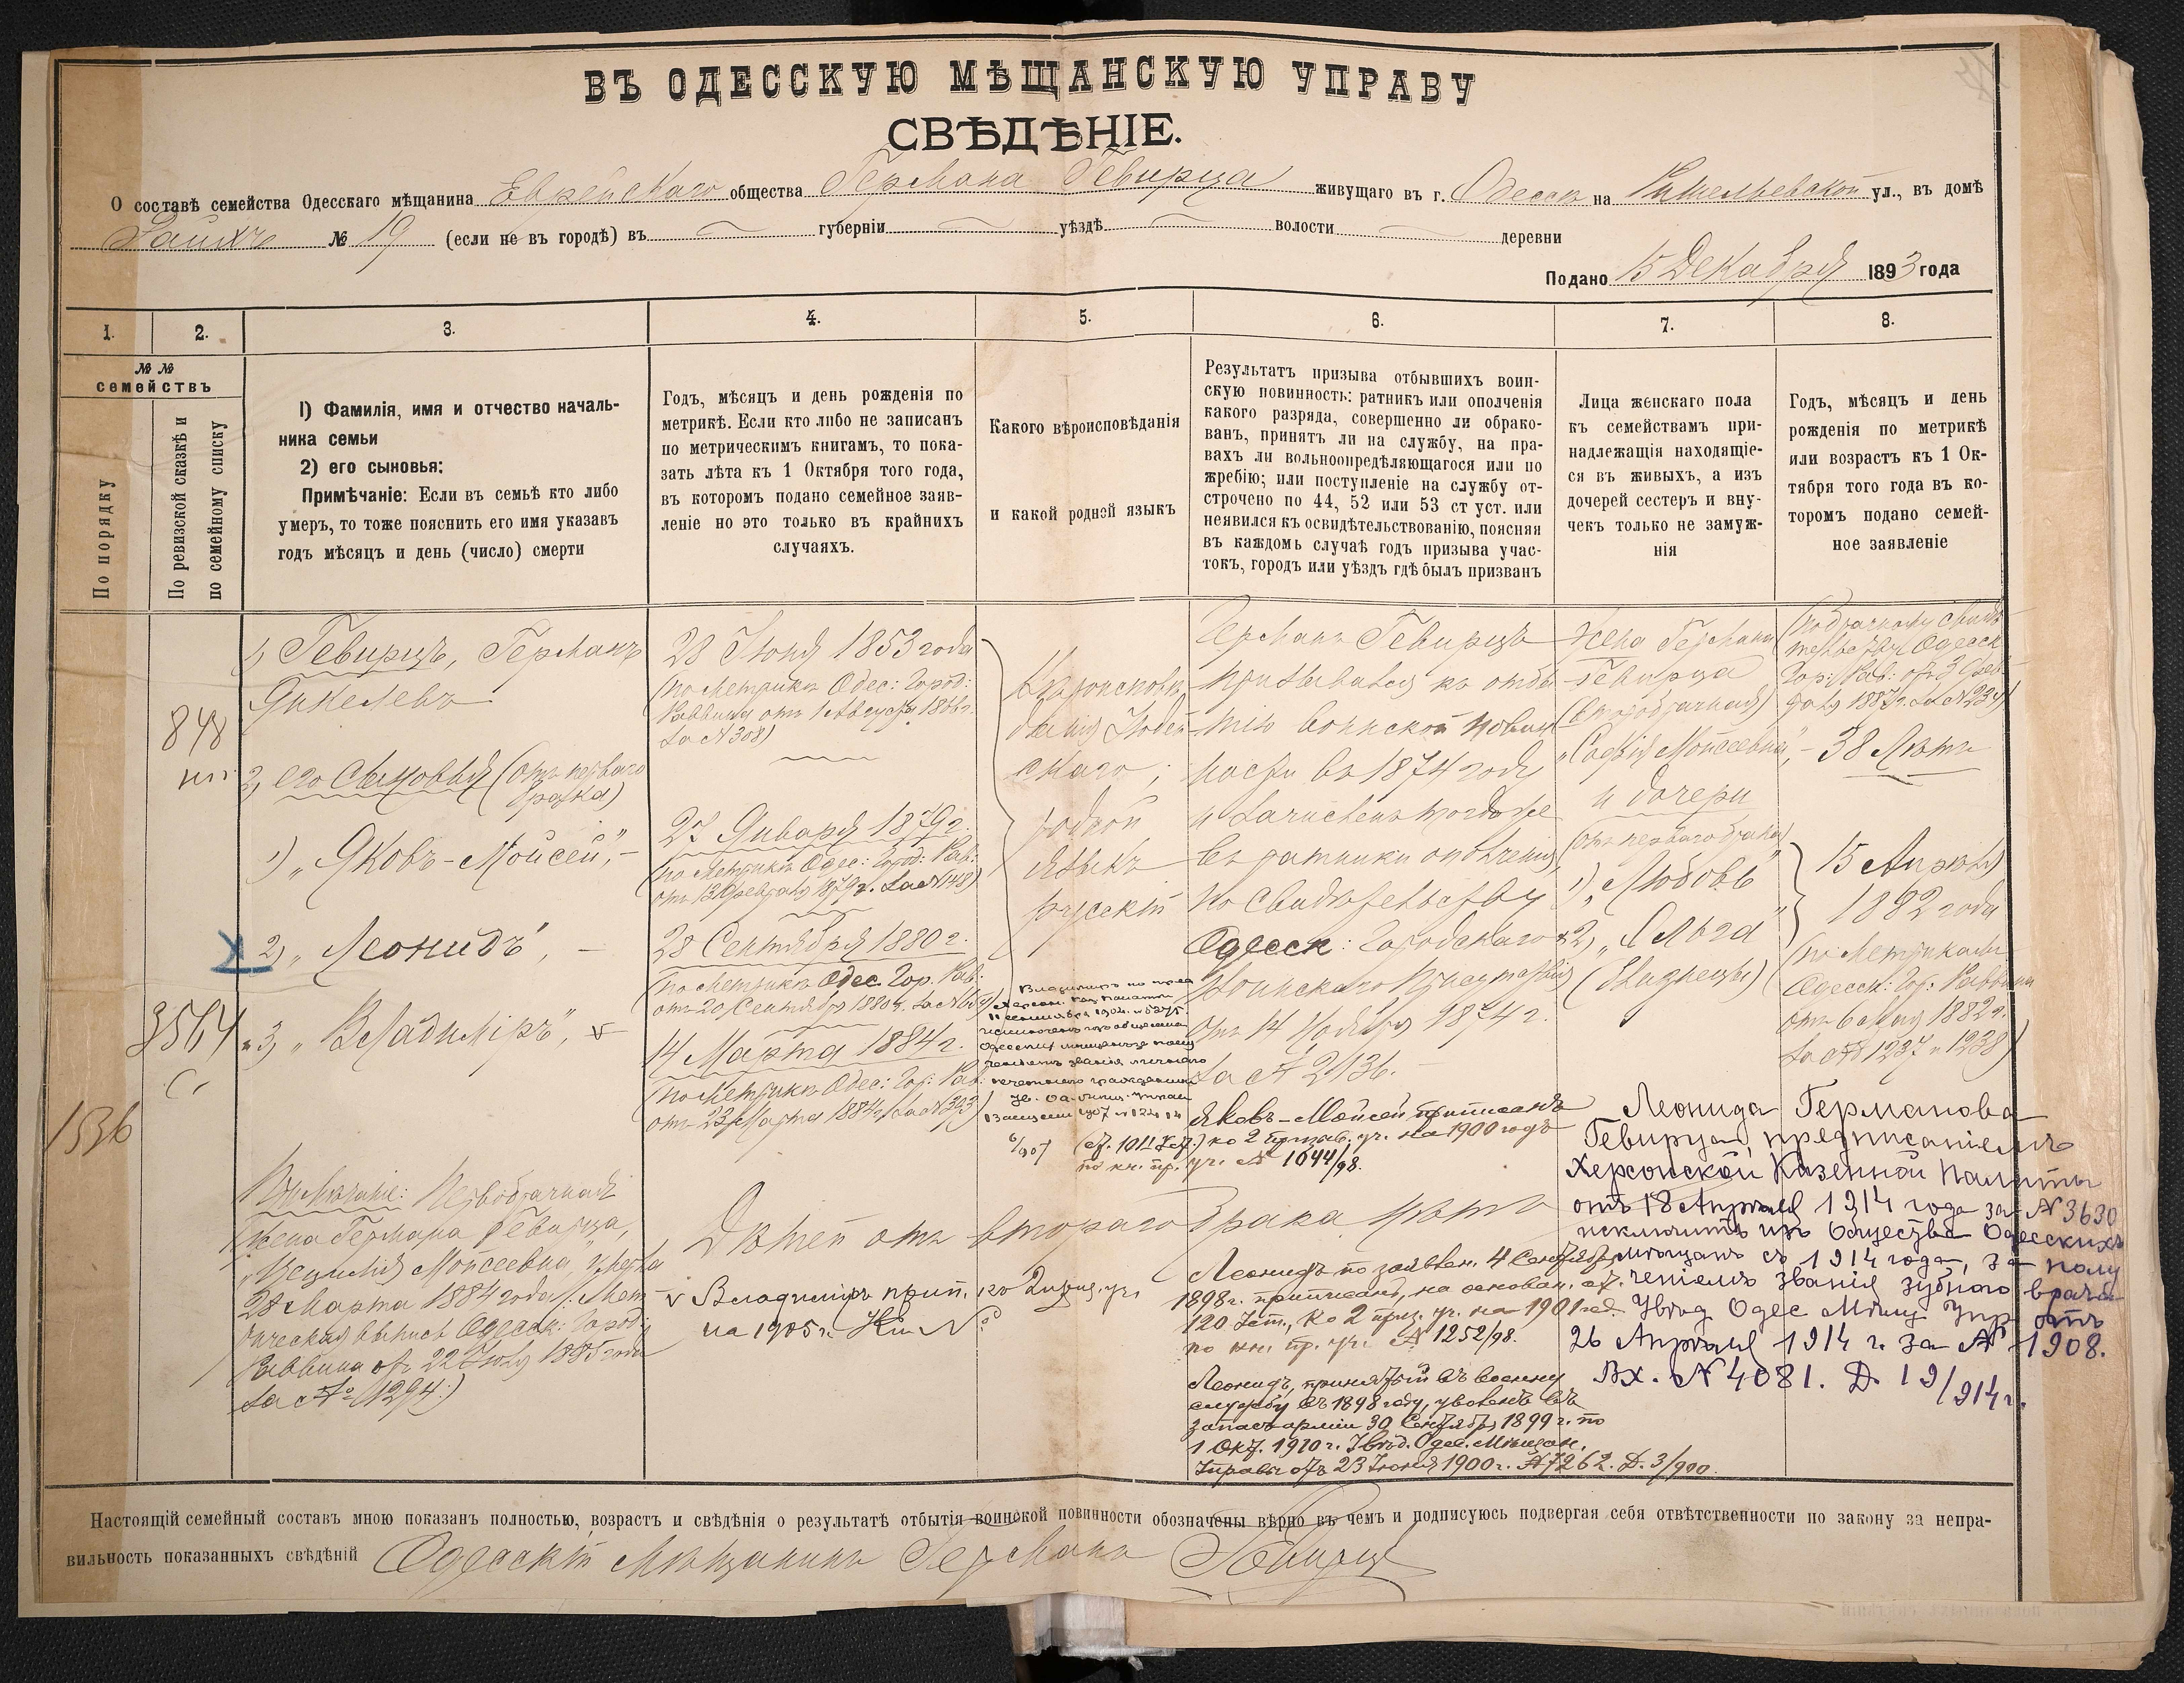 ВЪ ОДЕССКУЮ МѢЩАНСКУЮ УПРАВУ
СВѢДѢНІЕ.
О составѣ семейства Одесскаго мѣщанина Еврейскаго общества Германа Гевирца живущаго въ г. Одессѣ на Ришельевской ул., въ домѣ
№ 19 (если не въ городѣ) въ губерніи уѣздѣ волости деревни
Подано 15 Декабря 1893 года
1.
2.
3.
4.
5.
6.
7.
8.
№ №
семействъ
По порядку
По ревизской сказкѣ и
по семейному списку
1) Фамилія, имя и отчество началь-
ника семьи
2) его сыновья:
Примѣчаніе: Если въ семьѣ кто либо
умеръ, то тоже пояснить его имя указавъ
годъ мѣсяцъ и день (число) смерти
Годъ, мѣсяцъ и день рожденія по
метрикѣ. Если кто либо не записанъ
по метрическимъ книгамъ, то пока-
зать лѣта къ 1 Октября того года,
въ которомъ подано семейное заяв-
леніе но это только въ крайнихъ
случаяхъ.
Какого вѣроисповѣданія
и какой родной языкъ
Результатъ призыва отбывшихъ воин-
скую повинность: ратникъ или ополченія
какого разряда, совершенно ли обрако-
ванъ, принятъ ли на службу, на пра-
вахъ ли вольноопредѣляющагося или по
жребію; или поступленіе на службу от-
строчено по 44, 52 или 53 ст уст. или
неявился къ освидѣтельствованію, поясняя
въ каждомъ случаѣ годъ призыва учас-
токъ, городъ или уѣздъ гдѣ былъ призванъ
Лица женскаго пола
къ семействамъ при-
надлежащія находящіе-
ся въ живыхъ, а изъ
дочерей сестеръ и вну-
чекъ только не замуж-
нія
Годъ, мѣсяцъ и день
рожденія по метрикѣ
или возрастъ къ 1 Ок-
тября того года въ ко-
торомъ подано семей-
ное заявленіе
848
3564
1536
1) Гевирцъ, Германъ
Янкелевъ
2) его Сыновья (отъ перваго
брака)
1) „Яковъ-Мойсей",-
2) „Леонидъ", -
3) „Владиміръ", v
Примѣчаніе: Первобрачная
жена Германа Гевирца,
Мойсеевна", умерла
28 Марта 1884 года (: Мет-
рическая выпись Одесск: Город:
Раввина отъ 22 Іюля 1885 года
за № 1294:)
28 Іюня 1853 года
(по Метрикѣ Одес: Город:
Раввина отъ 1 Августа
за № 308)
27 Января 1879 г.
(по Метрикѣ Одес: Город: Рав:
отъ 13 Февраля 1879 г. за № 148)
28 Сентября 1880 г.
(по Метрикѣ Одес. Гор. Рав:
14 Марта 1884 г.
(по Метрикѣ Одес: Гор: Рав:
отъ 23 Марта 1884 г. за № 393)
Дѣтей отъ втораго брака нѣтъ
v Владиміръ прип. ко 2 приз. уч.
на 1905 г.
Вѣроисповѣ-
данія Іудей-
скаго;
родной
языкъ
русскій
Германъ Гевирцъ
призывался къ отбы-
тію воинской повин-
ности въ 1874 году
и зачисленъ тогда же
въ ратники ополченія,
по Свидѣтельству
Одесск: Городскаго
Воинскаго Присутствія
отъ 14 Ноября 1874 г.
за № 2136.-
Яковъ-Мойсей приписанъ
ко 2 призыв. уч. на 1900 годъ
по кн. пр. уч. № 1044/98.
Леонидъ по заявлен. 4 Сентября
1898 г. приписанъ, на основан. ст.
120 Уст., ко 2 приз. уч. на 1901 год
по кн. пр. уч. № 1252/98.
Леонидъ, принятый въ военную
службу въ 1898 году, уволенъ въ
запасъ арміи 30 Сентября 1899 г. по
1 Окт. 1910 г. Увѣд. Одес. Мѣщан.
Управы отъ 23 Іюня 1900 г. № 7262. Д. 3/900.
Жена Германа
Гевирца
(второбрачная)
„Софія Мойсеевна",-
и дочери
(отъ перваго брака)
1) „Любовь"
2) „Ольга"
(близнецы)
(по брачному свидѣ-
тельству Одесск.
Гор: Рав: отъ 3 Фев-
раля 1887 г. за № 23)
38 Лѣтъ
15 Апрѣля
1882 года
(по Метрикамъ
Одесск: Гор: Раввина
отъ 6 Мая 1882 г.
за №№ 1237 и 1238)
Леонида Германова
Гевирца, предписаніемъ
Херсонской Казенной Палаты
отъ 18 Апрѣля 1914 года за № 3630
исключить изъ общества Одесскихъ
мѣщанъ съ 1914 года, за полу
ченіемъ званія зубного врача
Увѣд Одес Мѣщ Упр отъ
26 Апрѣля 1914 г. за № 1908.
Вх. № 4081. Д 19/914 г.
Настоящій семейный составъ мною показанъ полностью, возрастъ и свѣдѣнія о результатѣ отбытія воинской повинности обозначены вѣрно въ чемъ и подписуюсь подвергая себя отвѣтственности по закону за непра-
вильность показанныхъ свѣдѣній Одесскій Мѣщанинъ Германъ Гевирцъ